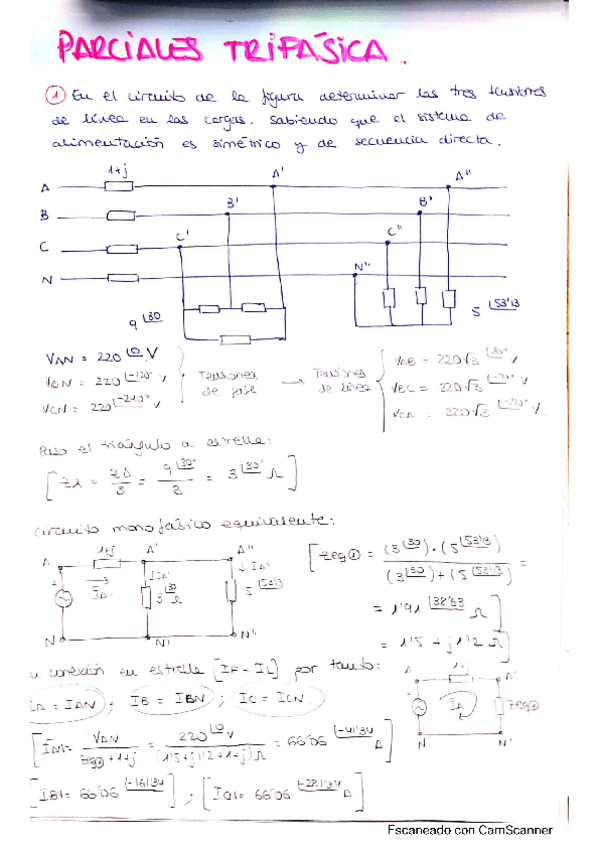 PARCIALES TRIFÁSICA.
① En el circuito de la figura determinar las tres tensiones
de línea en las cargas. Sabiendo que el sistema de
alimentación es simétrico y de secuencia directa.
1+j
A' A''
A
B B' B'
C C' C''
N N''
9 |30 5 |53'13
VAN = 220 |0 V
VBN = 220 |-120° V
VCN = 220 |-240° V
Tensiones
de fase → Tensiones
de línea
VAB = 220√3 |30° V
VBC = 220√3 |-90° V
VCA = 220√3 |-210° V
Paso el triángulo a estrella:
[Zλ = ZΔ/3 = 9|30°/3 = 3|30° Ω]
circuito monofásico equivalente:
A 1+j A' A''
IA IA' ↓ IA''
3|30 Ω 5 |53'13
N N' N''
[Zeq① = (3|30)·(5|53'13) / (3|30)+(5|53'13) =
= 1'91 |38'63 Ω]
= 1'5 + j1'2 Ω]
conexión en estrella [IF = IL] por tanto:
IA = IAN ; IB = IBN ; IC = ICN
A A'
IA Zeq①
N N'
[IAN = VAN / Zeq+1+j = 220|0 V / (1'5+j1'2+1+j)Ω = 66'06 |-41'34 A]
[IBN = 66'06 |-161'34] ; [ICN = 66'06 |-281'34 A]
Escaneado con CamScanner